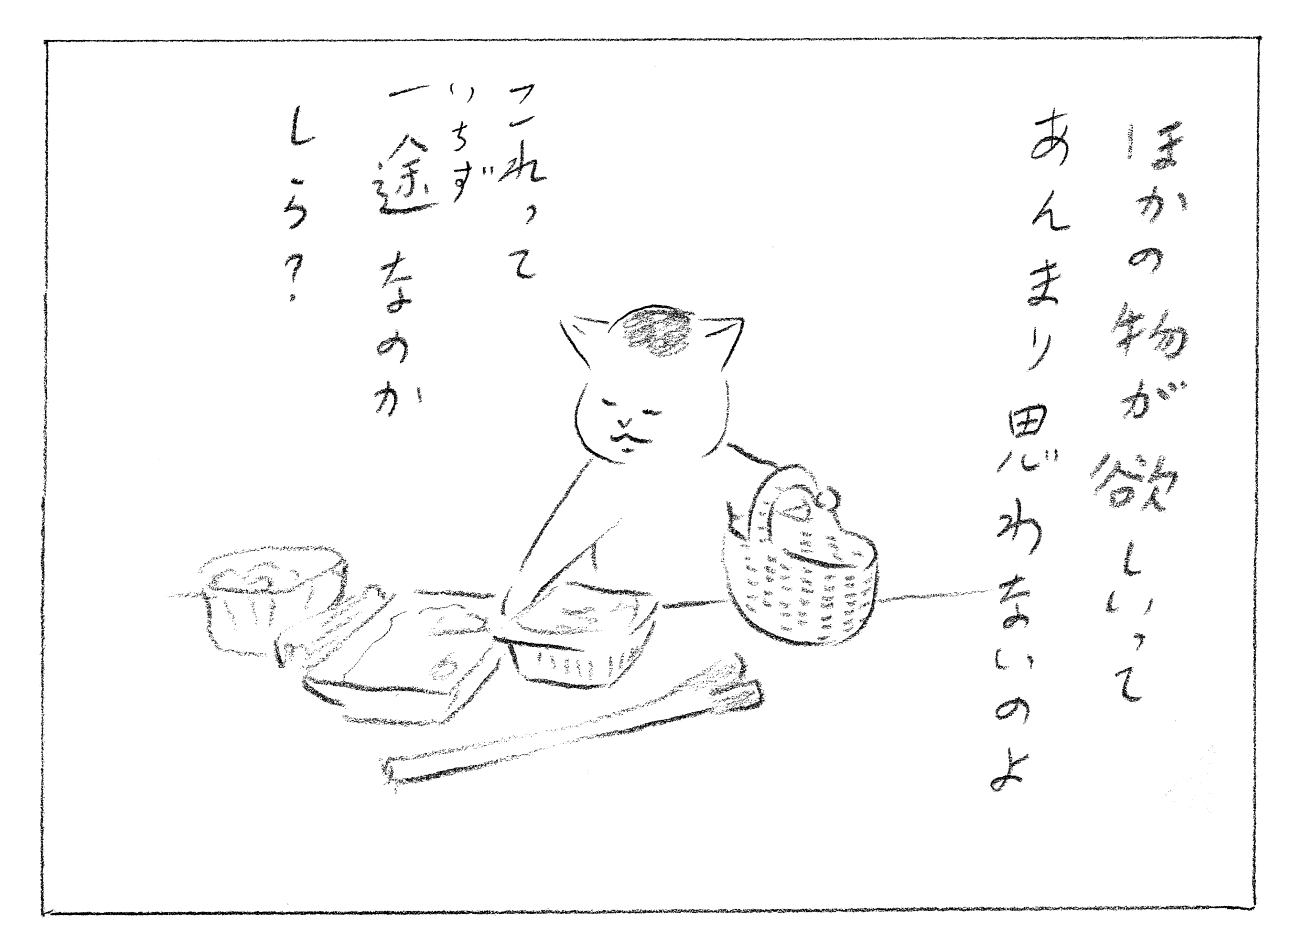 ほかの物が欲しいって
あんまり思わないのよ
これって
いちず
一途なのか
しら?